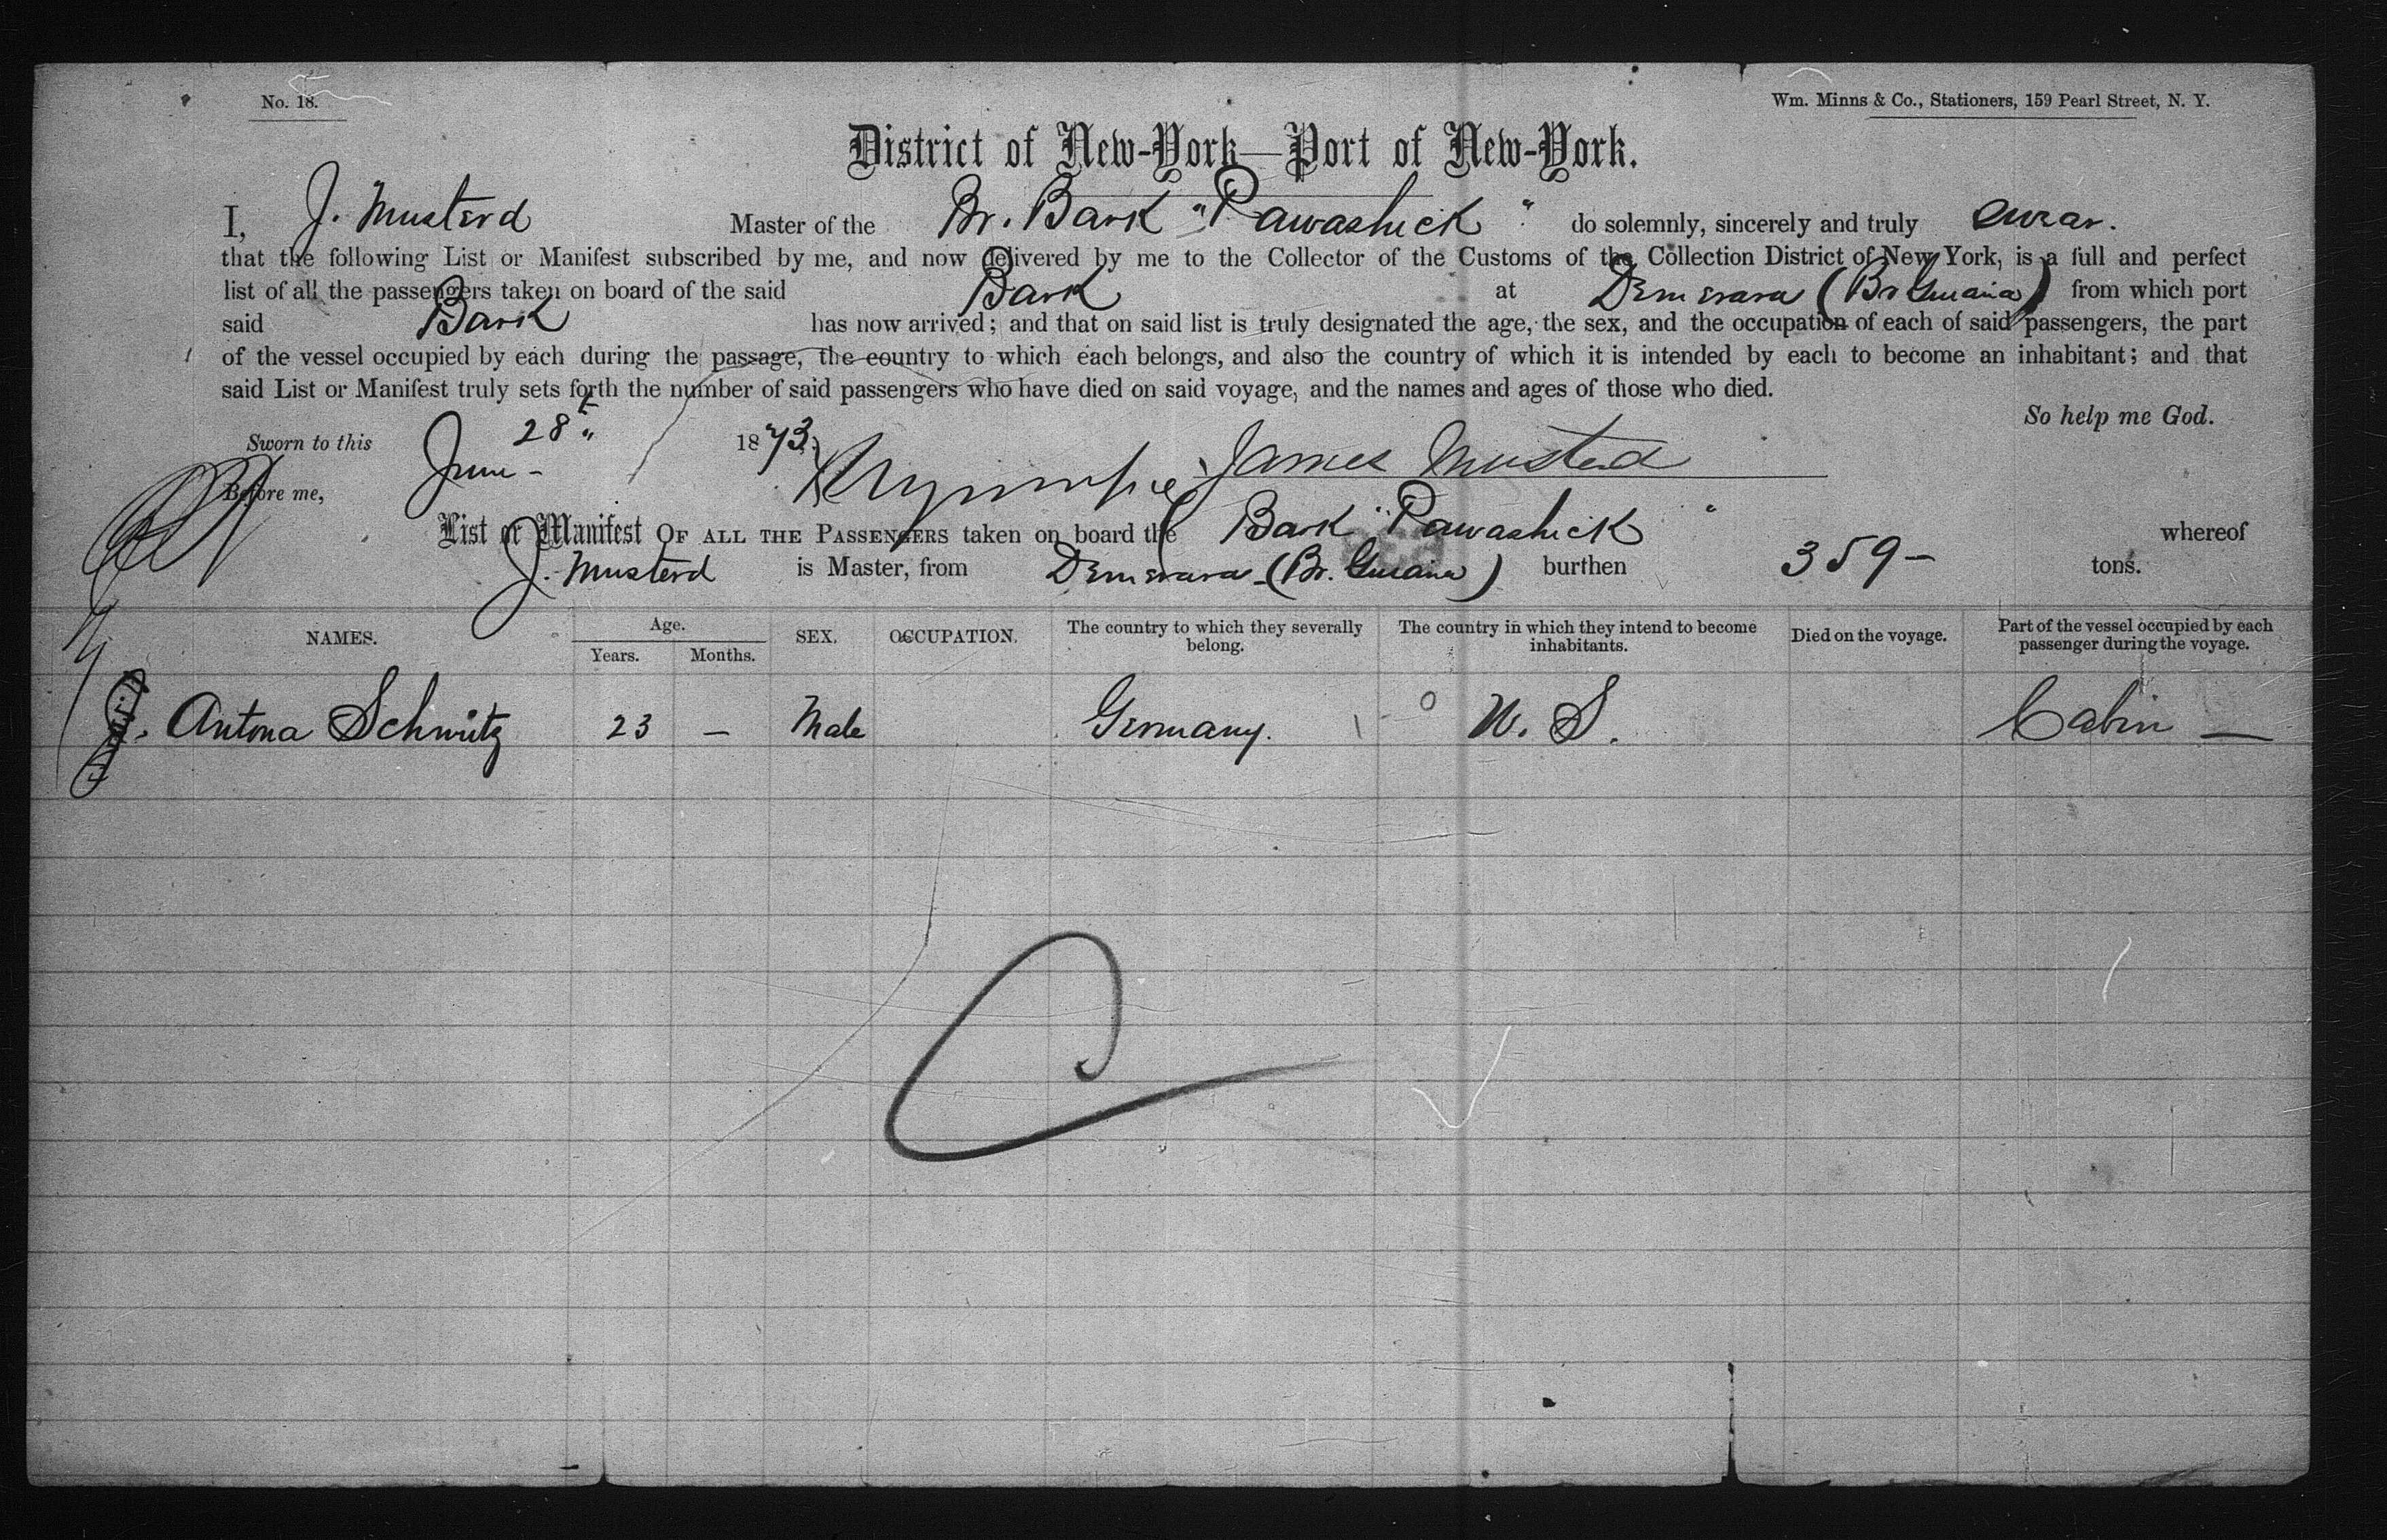 No. 18.
Wm. Minns & Co., Stationers, 159 Pearl Street, N. Y.
District of New-York—Port of New-York.
I, J. Musterd Master of the Br. Bark "Pawashick" do solemnly, sincerely and truly swear.
that the following List or Manifest subscribed by me, and now delivered by me to the Collector of the Customs of the Collection District of New York, is a full and perfect
list of all the passengers taken on board of the said Bark at Demerara (Br Guiana) from which port
said Bark has now arrived; and that on said list is truly designated the age, the sex, and the occupation of each of said passengers, the part
of the vessel occupied by each during the passage, the country to which each belongs, and also the country of which it is intended by each to become an inhabitant; and that
said List or Manifest truly sets forth the number of said passengers who have died on said voyage, and the names and ages of those who died.
So help me God.
Sworn to this June - 28t 1873. James Musterd
Before me,
List or Manifest OF ALL THE PASSENGERS taken on board the Bark "Pawashick" whereof
J. Musterd is Master, from Demerara - (Br. Guiana) burthen 359 - tons.
NAMES. Age. Years. Months. SEX. OCCUPATION. The country to which they severally belong. The country in which they intend to become inhabitants. Died on the voyage. Part of the vessel occupied by each passenger during the voyage.
Antona Schmitz 23 — Male Germany. U. S. Cabin —